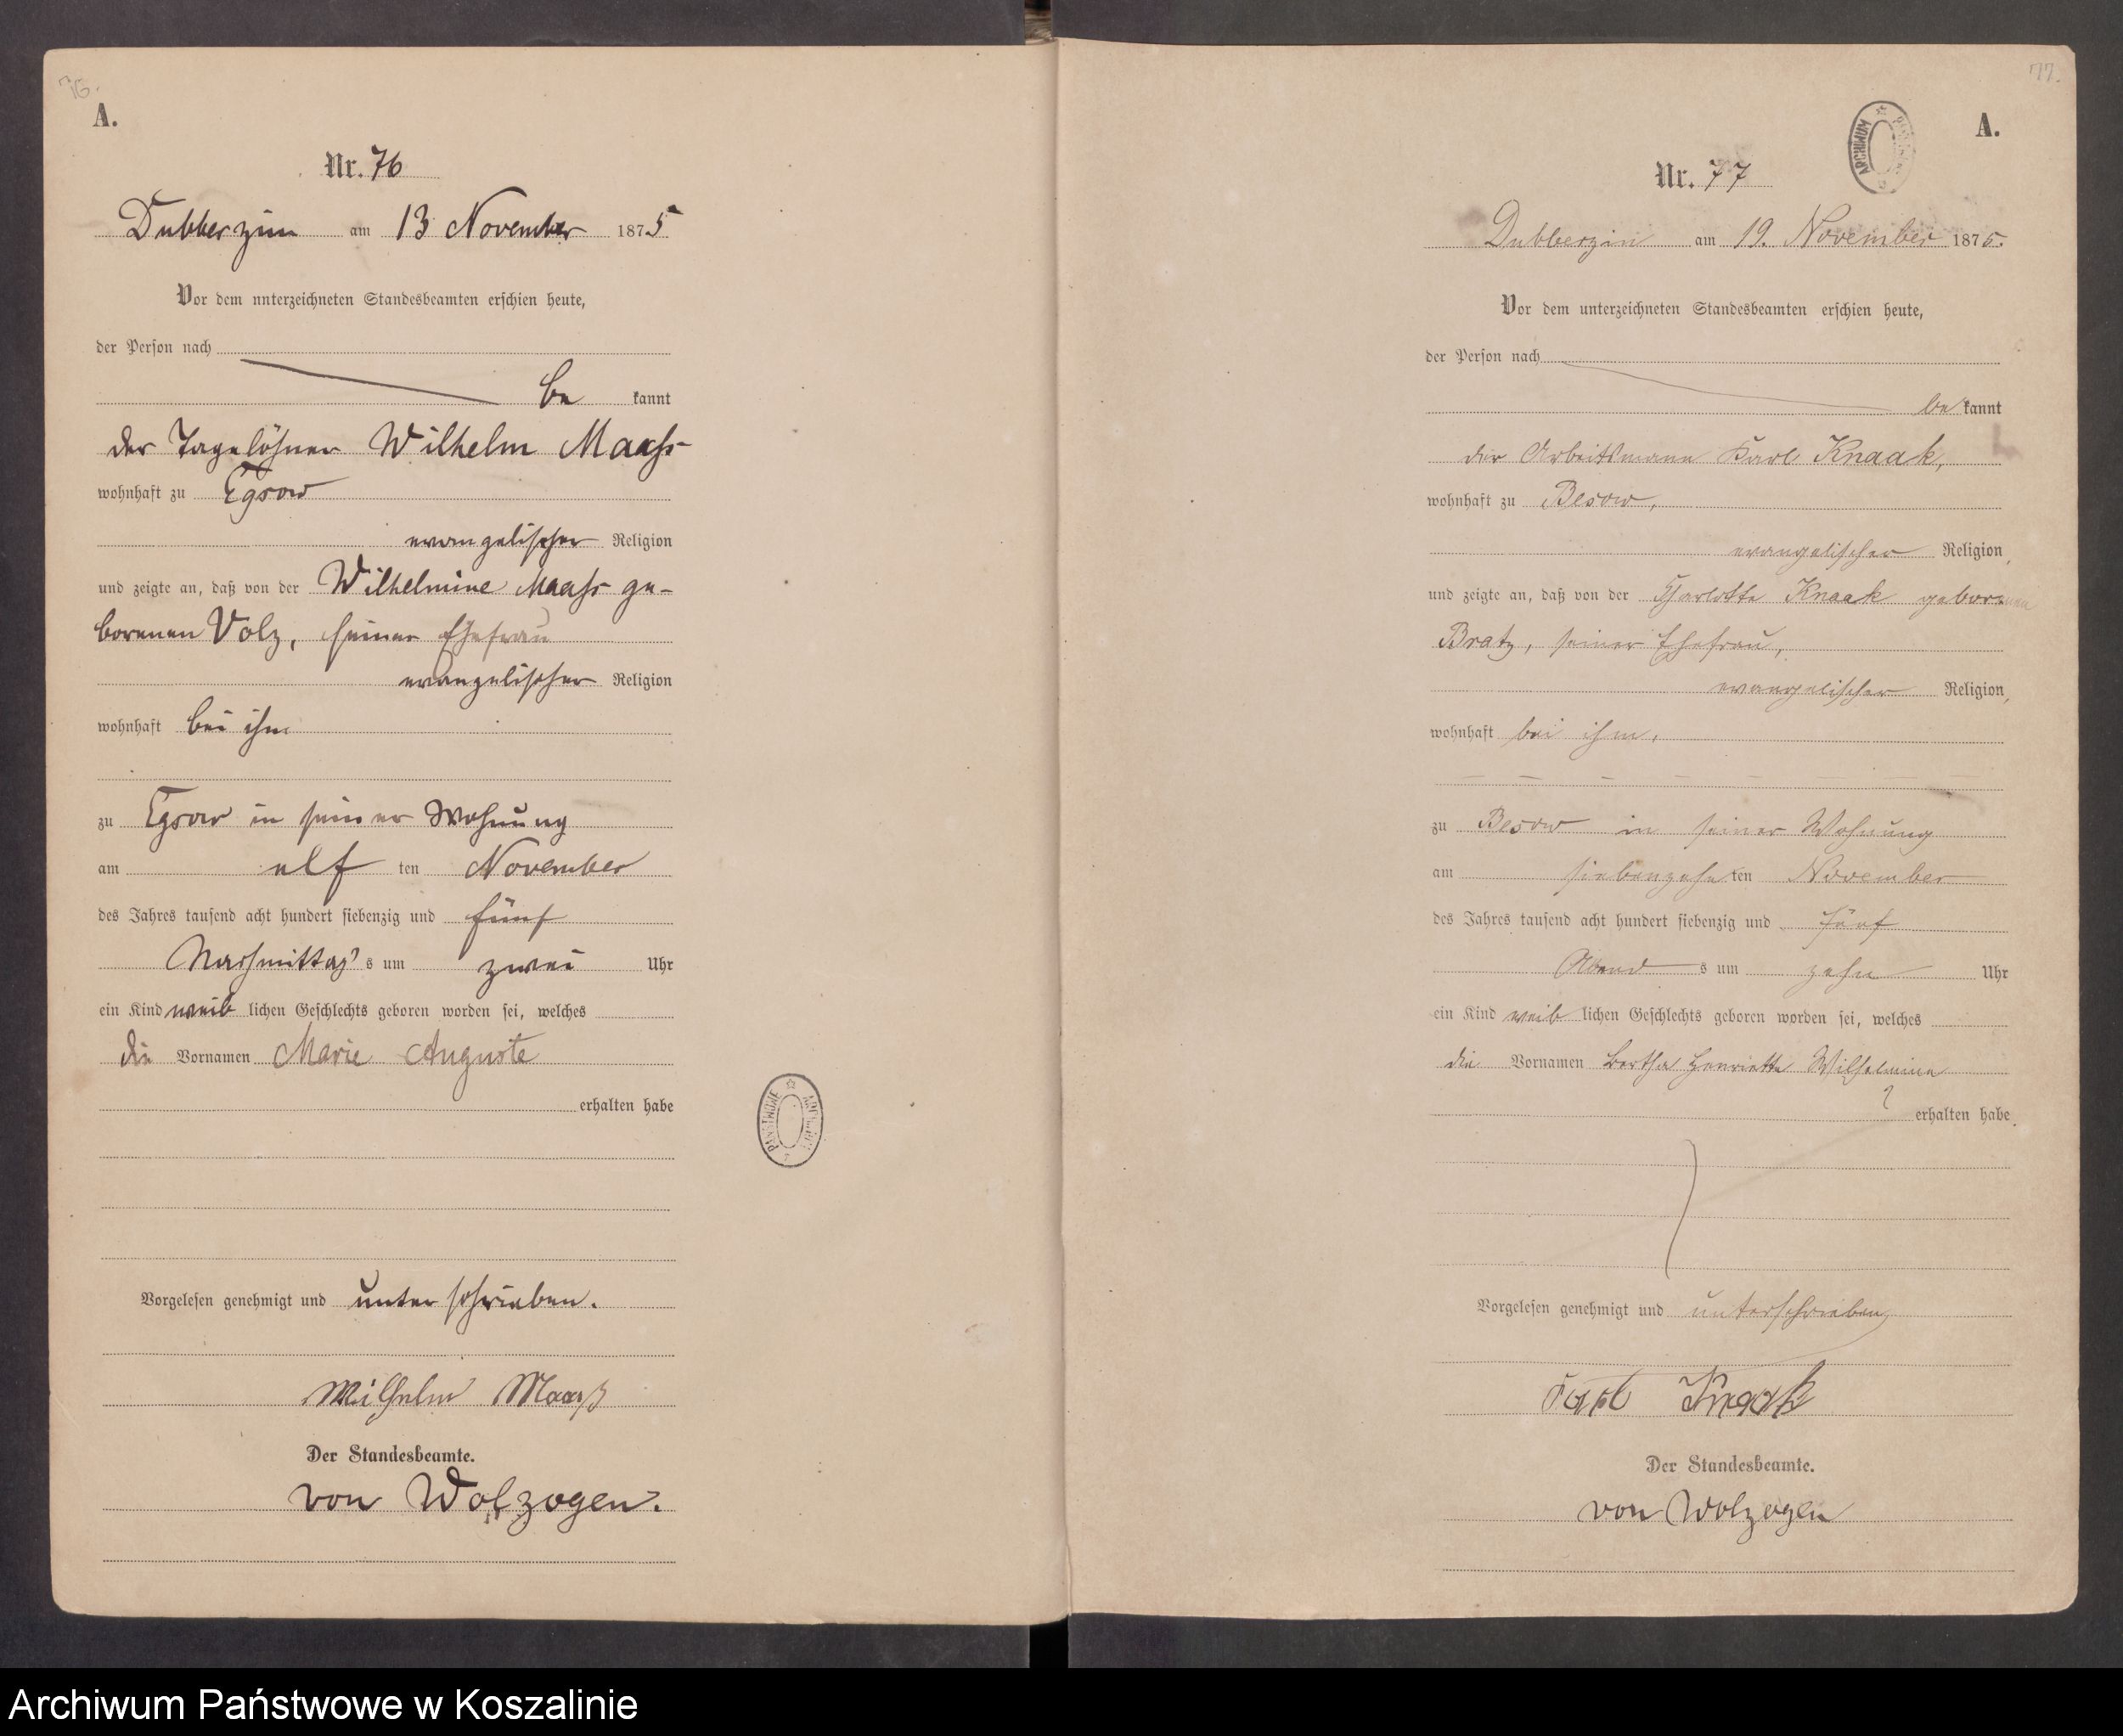 76.
A.
Nr. 76
Dubberzin am 13 November 1875
Vor dem unterzeichneten Standesbeamten erschien heute,
der Person nach
be kannt
der Tagelöhner Wilhelm Maass
wohnhaft zu Egsow
evangelischer Religion
und zeigte an, daß von der Wilhelmine Maass ge-
borenen Volz, seiner Ehefrau
evangelischer Religion
wohnhaft bei ihm
zu Egsow in seiner Wohnung
am elf ten November
des Jahres tausend acht hundert siebenzig und fünf
Nachmittag s um zwei Uhr
ein Kind weib lichen Geschlechts geboren worden sei, welches
die Vornamen Marie Auguste
erhalten habe
PAŃSTWOWE
Vorgelesen genehmigt und unterschrieben.
Wilhelm Maaß
Der Standesbeamte.
von Wolzogen.
77.
ARCHIWUM
A.
Nr. 77
Dubberzin am 19. November 1875.
Vor dem unterzeichneten Standesbeamten erschien heute,
der Person nach
be kannt
der Arbeitsmann Karl Knaak,
wohnhaft zu Besow,
evangelischer Religion,
und zeigte an, daß von der Charlotte Knaak geborenen
Bratz, seiner Ehefrau,
evangelischer Religion,
wohnhaft bei ihm,
zu Besow in seiner Wohnung
am siebenzehn ten November
des Jahres tausend acht hundert siebenzig und fünf
Abend s um zehn Uhr
ein Kind weib lichen Geschlechts geboren worden sei, welches
die Vornamen Bertha Henriette Wilhelmine
erhalten habe.
Vorgelesen genehmigt und unterschrieben
Karl Knaak
Der Standesbeamte.
von Wolzogen
Archiwum Państwowe w Koszalinie